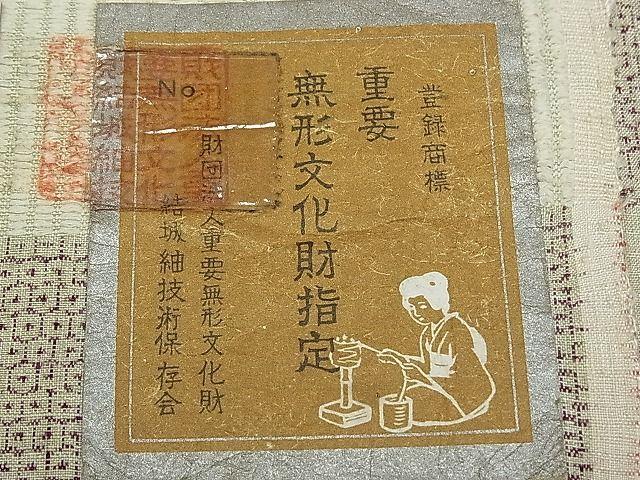 登録商標
重要
無形文化財指定
財団法人重要無形文化財
結城紬技術保存会
No